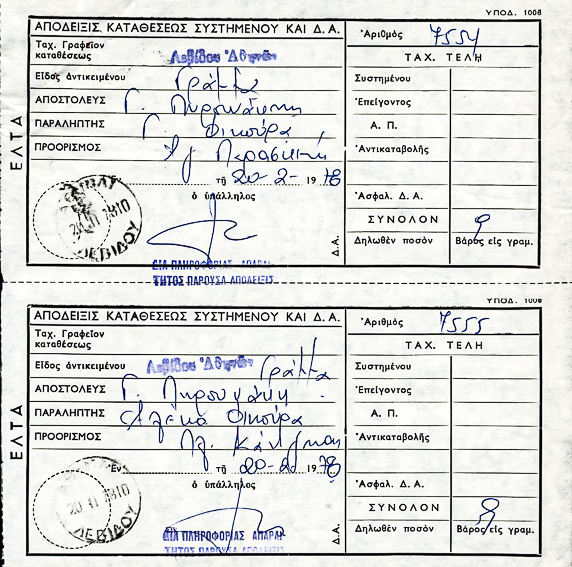 ΥΠΟΔ. 1006
ΑΠΟΔΕΙΞΙΣ ΚΑΤΑΘΕΣΕΩΣ ΣΥΣΤΗΜΕΝΟΥ ΚΑΙ Δ. Α.
Ἀριθμὸς 7554
Ταχ. Γραφεῖον καταθέσεως Λεβίδου Ἀθηνῶν
ΤΑΧ. ΤΕΛΗ
Εἶδος ἀντικειμένου Γράμμα
Συστημένου
ΑΠΟΣΤΟΛΕΥΣ Γ.
Ἐπείγοντος
ΠΑΡΑΛΗΠΤΗΣ Γ.
Α. Π.
ΠΡΟΟΡΙΣΜΟΣ
Ἀντικαταβολῆς
τῇ 20-2- 1978
Ἀσφαλ. Δ. Α.
ὁ ὑπάλληλος
ΣΥΝΟΛΟΝ 9
Δηλωθὲν ποσὸν
Βάρος εἰς γραμ.
ΕΛΤΑ
Δ.Α.
ΛΕΒΙΔΟΥ
ΔΙΑ ΠΛΗΡΟΦΟΡΙΑΣ ΑΠΑΡΑΙ-
ΤΗΤΟΣ ΠΑΡΟΥΣΑ ΑΠΟΔΕΙΞΙΣ
ΥΠΟΔ. 1006
ΑΠΟΔΕΙΞΙΣ ΚΑΤΑΘΕΣΕΩΣ ΣΥΣΤΗΜΕΝΟΥ ΚΑΙ Δ. Α.
Ἀριθμὸς 7555
Ταχ. Γραφεῖον καταθέσεως
ΤΑΧ. ΤΕΛΗ
Εἶδος ἀντικειμένου Λεβίδου Ἀθηνῶν Γράμμα
Συστημένου
ΑΠΟΣΤΟΛΕΥΣ Γ.
Ἐπείγοντος
ΠΑΡΑΛΗΠΤΗΣ
Α. Π.
ΠΡΟΟΡΙΣΜΟΣ
Ἀντικαταβολῆς
Ἐν τῇ 20-2- 1978
Ἀσφαλ. Δ. Α.
ὁ ὑπάλληλος
ΣΥΝΟΛΟΝ 9
Δηλωθὲν ποσὸν
Βάρος εἰς γραμ.
ΕΛΤΑ
Δ.Α.
ΛΕΒΙΔΟΥ
ΔΙΑ ΠΛΗΡΟΦΟΡΙΑΣ ΑΠΑΡΑΙ-
ΤΗΤΟΣ ΠΑΡΟΥΣΑ ΑΠΟΔΕΙΞΙΣ